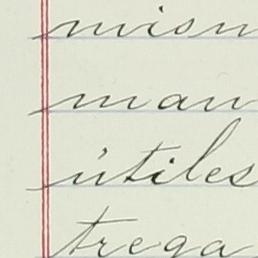 mism
man
útiles
trega